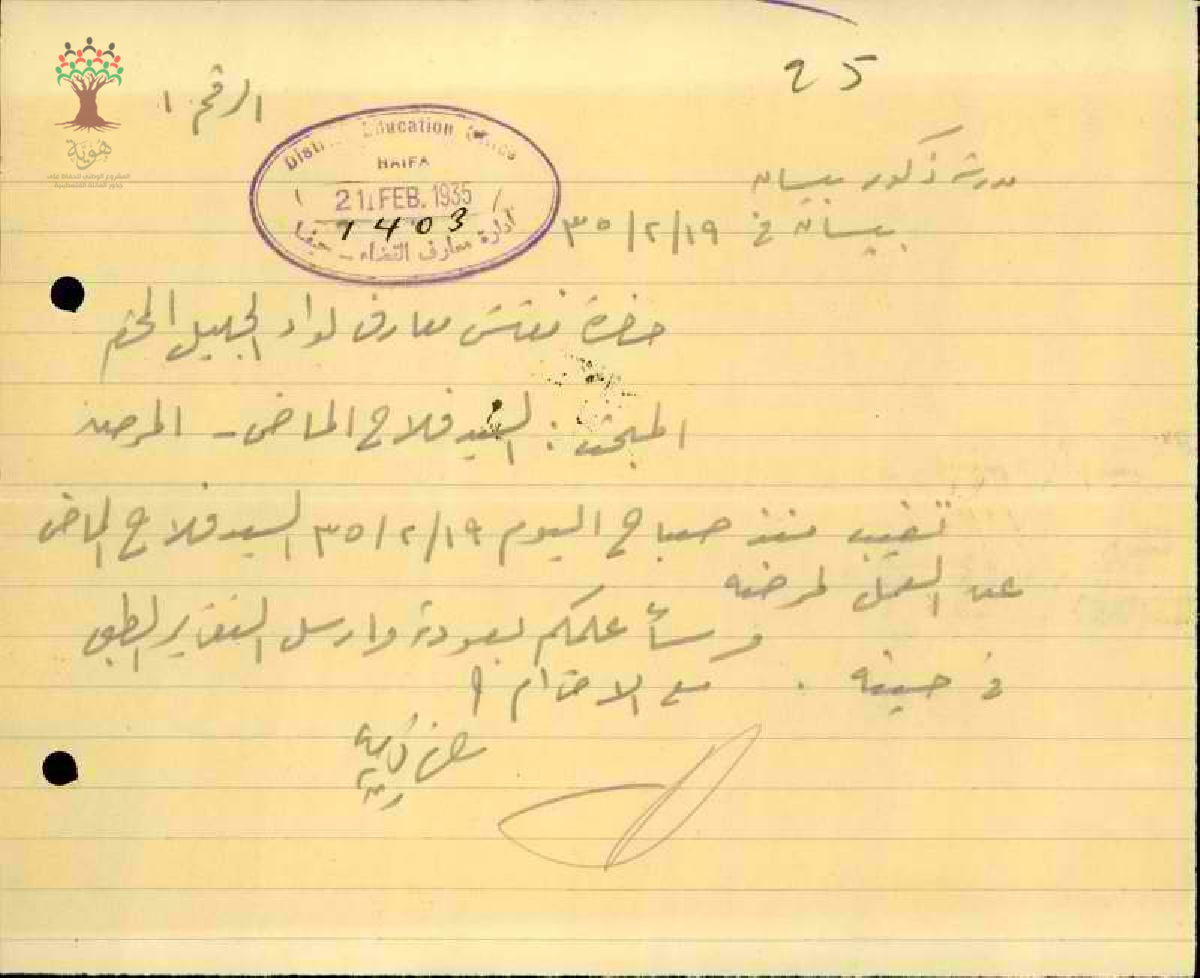 25
الرقم ١
هوية
المشروع الوطني للحفاظ على
جذور العائلة الفلسطينية
District Education Office
HAIFA
21 FEB. 1935
1403
ادارة معارف القضاء - حيفا
مدرسة ذكور بيسان
بيسان في ٣٥/٢/١٩
حضرة مفتش معارف لواء الجليل المحترم
المبحث : السيد فلاح الماضي - المرض
تغيب منذ صباح اليوم ٣٥/٢/١٩ السيد فلاح الماضي
عن العمل لمرضه
وسأعلمكم بعودته وارسل التقرير الطبي
في حينه . مع الاحترام